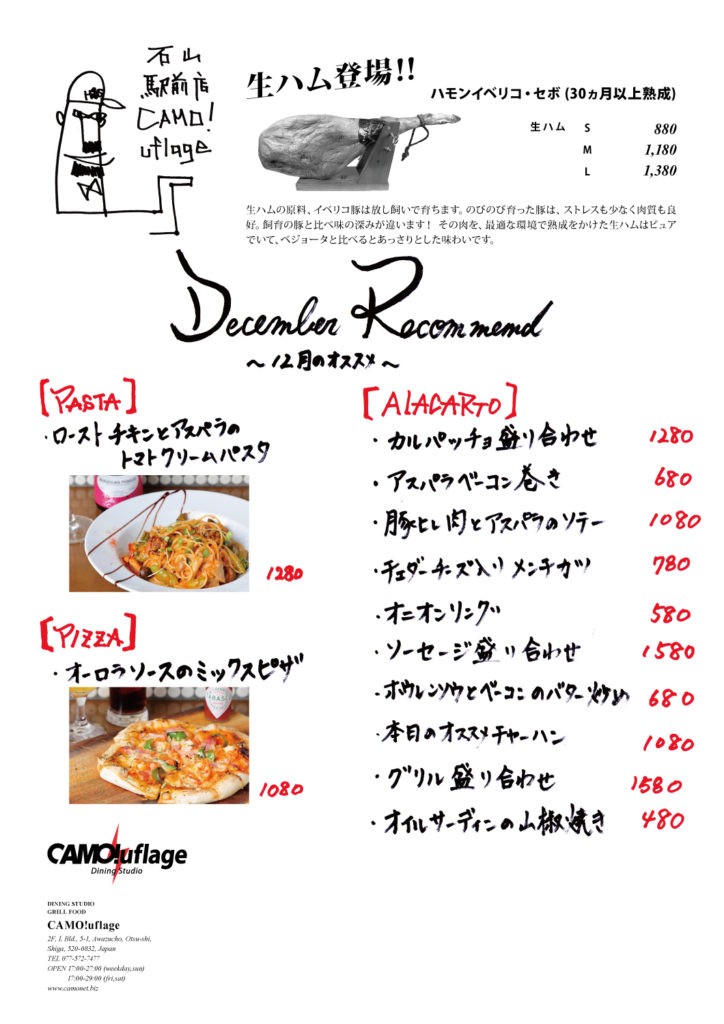 石山
駅前店
CAMO!
uflage
生ハム登場!!
ハモンイベリコ・セボ (30ヵ月以上熟成)
生ハム S 880
M 1,180
L 1,380
生ハムの原料、イベリコ豚は放し飼いで育ちます。のびのび育った豚は、ストレスも少なく肉質も良
好。飼育の豚と比べ味の深みが違います! その肉を、最適な環境で熟成をかけた生ハムはピュア
でいて、ベジョータと比べるとあっさりとした味わいです。
December Recommemd
～12月のオススメ～
[PASTA]
・ローストチキンとアスパラの
トマトクリームパスタ
1280
[PIZZA]
・オーロラソースのミックスピザ
1080
[AlACARTO]
・カルパッチョ盛り合わせ 1280
・アスパラベーコン巻き 680
・豚ヒレ肉とアスパラのソテー 1080
・チェダーチーズ入りメンチカツ 780
・オニオンリング 580
・ソーセージ盛り合わせ 1580
・ホウレンソウとベーコンのバター炒め 680
・本日のオススメチャーハン 1080
・グリル盛り合わせ 1580
・オイルサーディンの山椒焼き 480
CAMO!uflage
Dining Studio
DINING STUDIO
GRILL FOOD
CAMO!uflage
2F, L Bld., 5-1, Awazucho, Otsu-shi,
Shiga, 520-0832, Japan
TEL 077-572-7477
OPEN 17:00-27:00 (weekday,sun)
17:00-29:00 (fri,sat)
www.camonet.biz